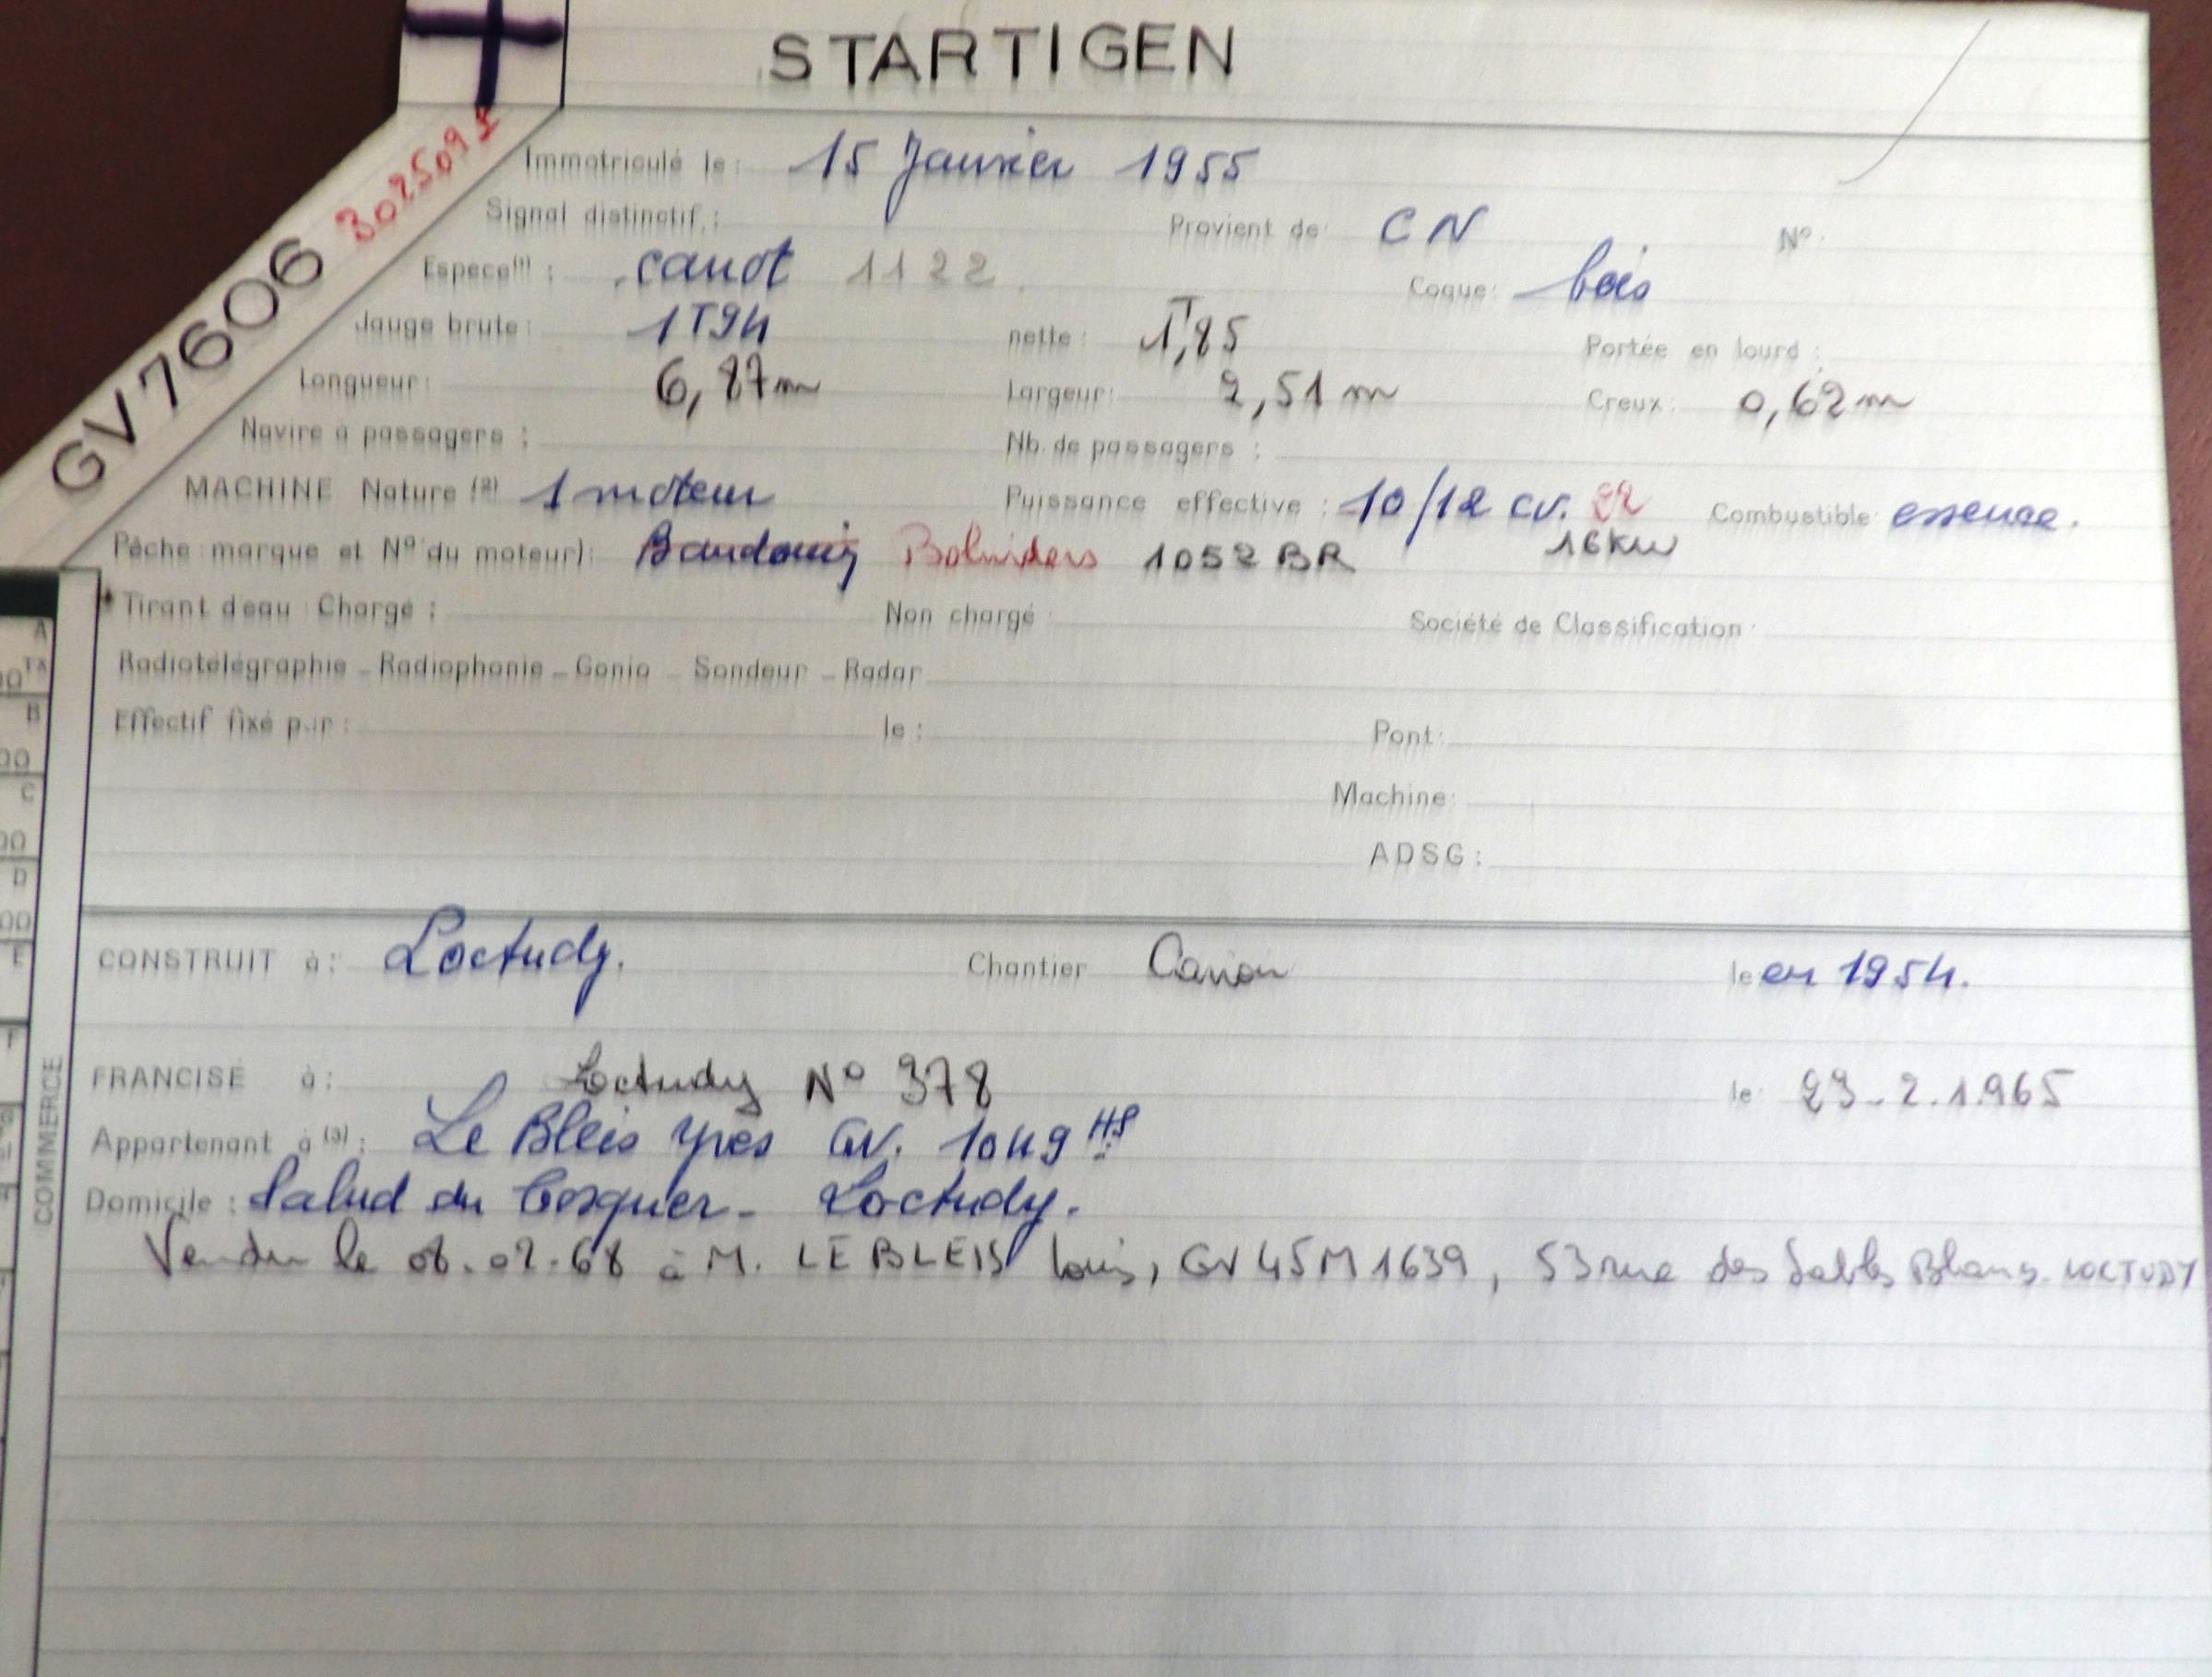 STARTIGEN
GV7606 3025091
Immatriculé le: 15 Janvier 1955
Signal distinctif: Provient de CN N°
Espece(1): canot 1122 Coque: bois
Jauge brute: 1T94 nette: 1T,85 Portée en lourd:
Longueur: 6,87m Largeur: 2,51m Creux: 0,62m
Navire à passagers: Nb. de passagers:
MACHINE Nature (2) 1 moteur Puissance effective: 10/12 cv. 22 Combustible essence.
16KW
Pêche marque et N° du moteur): Baudouin Bolniders 1052 BR
Tirant d'eau Chargé: Non chargé Société de Classification
Radiotélégraphie - Radiophonie - Gonio - Sondeur - Radar
Effectif fixé par: le: Pont:
Machine:
ADSG:
CONSTRUIT à: Loctudy. Chantier le en 1954.
FRANCISE à: Loctudy N° 378 le 23-2.1965
Appartenant à (3): Le Bleis Yves GV. 1049 HS
Domicile: Palud du Cosquer - Loctudy.
Vendu le 08.02.68 à M. LE BLEIS Louis, GV 45M1639, 53 rue des Sables Blancs. LOCTUDY
A
TA
B
C
D
E
F
COMMERCE